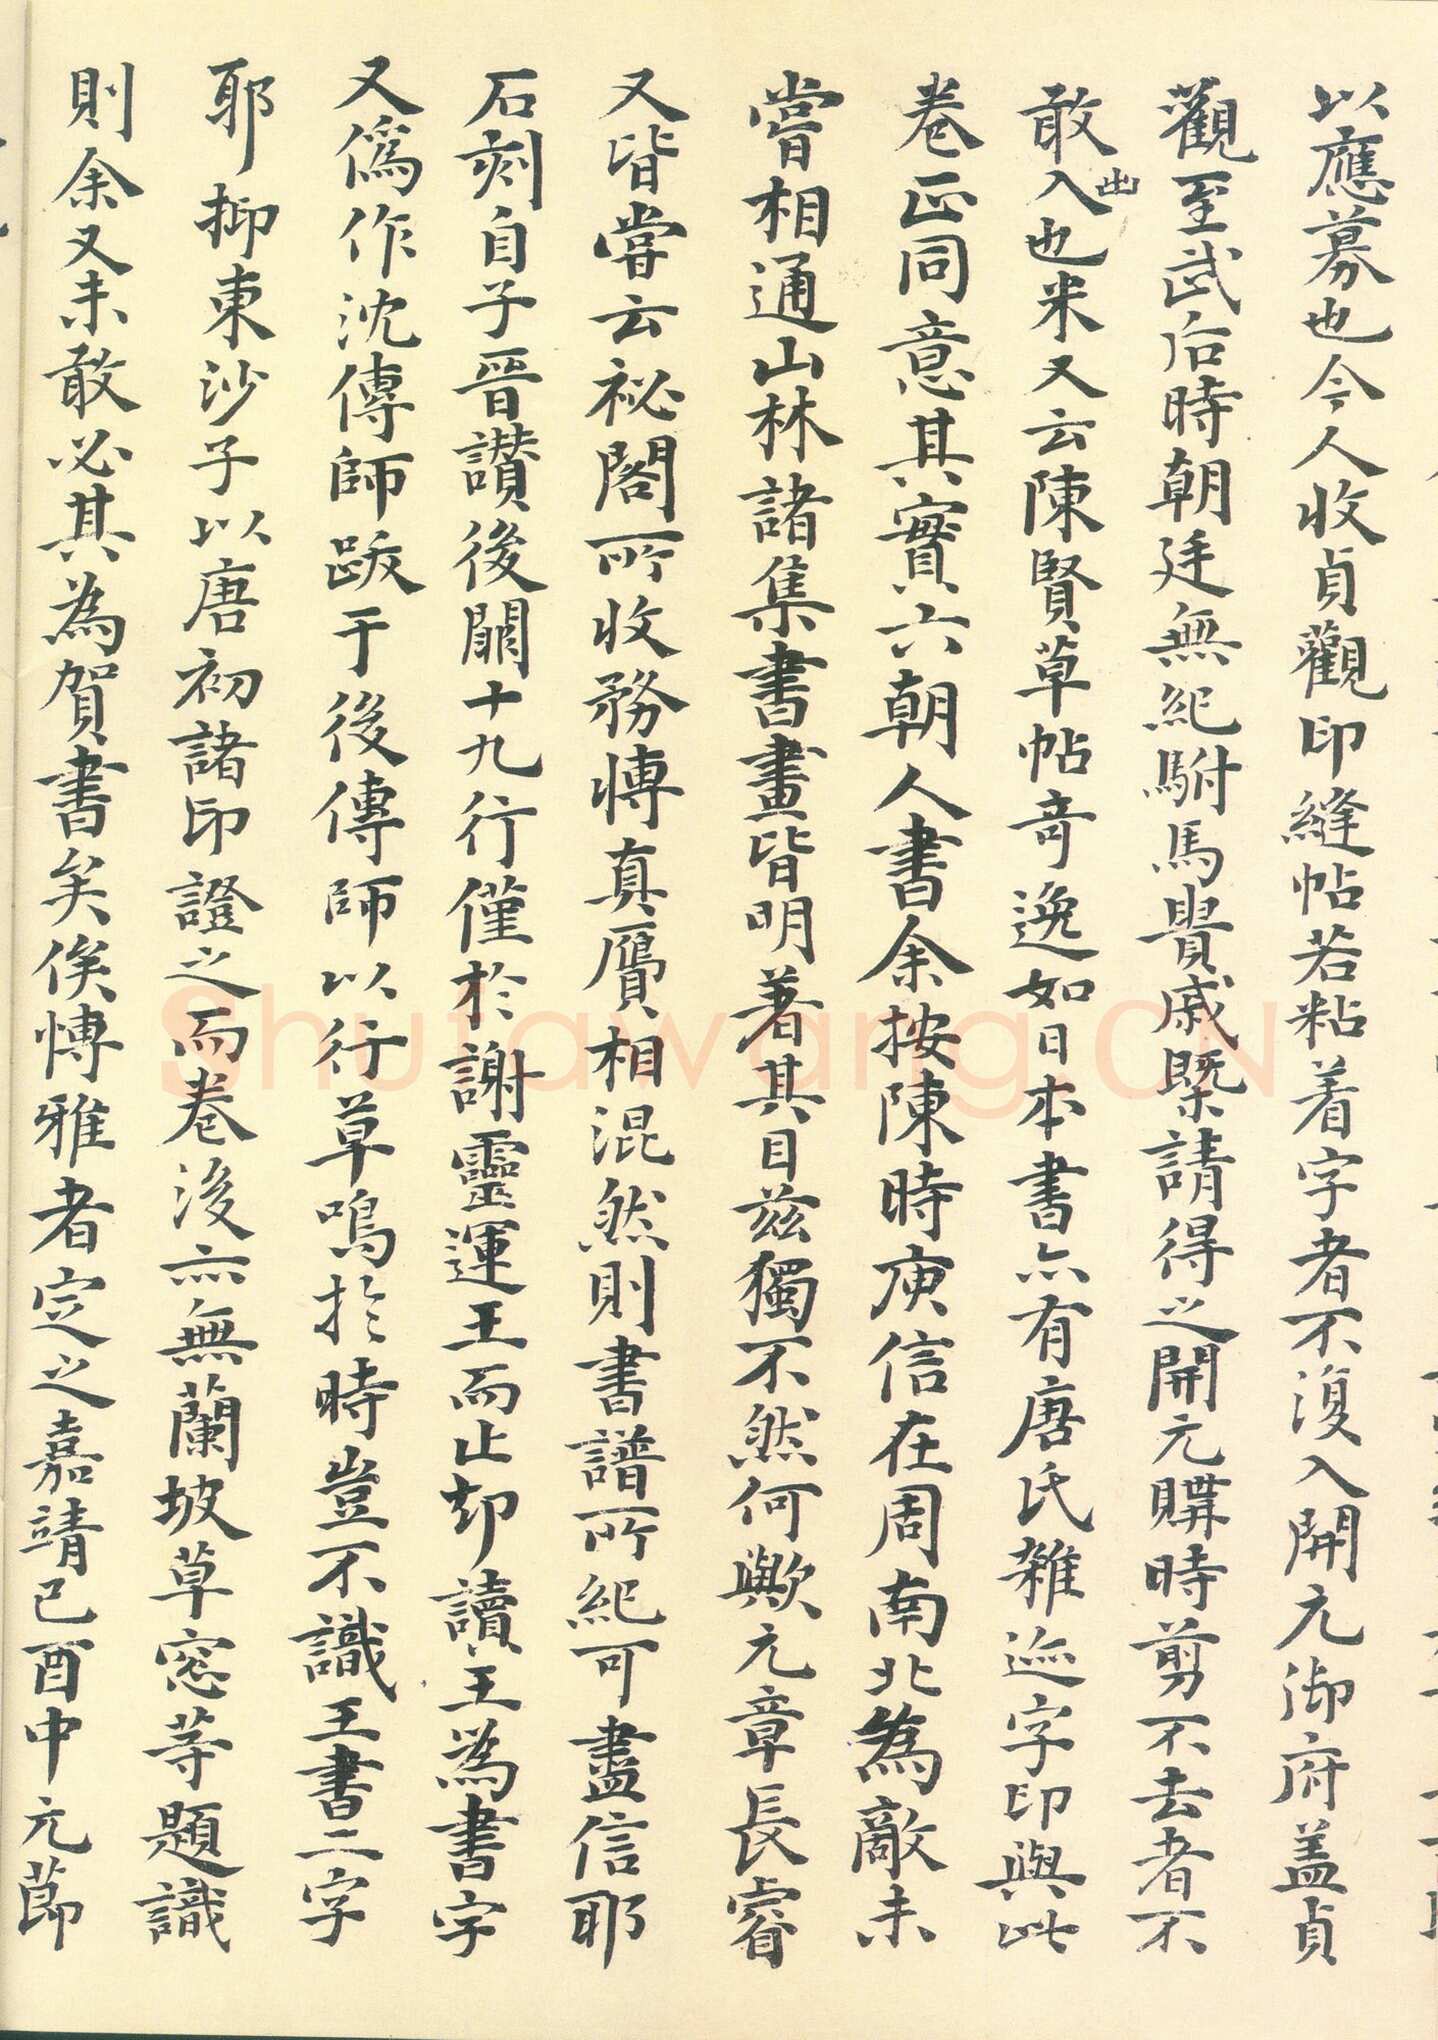 以應募也今人收貞觀印縫帖若粘着字者不復入開元御府盖貞
觀至武后時朝廷無紀駙馬貴戚暨請得之開元購時剪不去者不
敢出入也米又云陳賢草帖奇逸如日本書亦有唐氏雜迹字印與此
卷正同意其實六朝人書余按陳時庾信在周南北為敵未
嘗相通山林諸集書畫皆明著其目茲獨不然何歟元章長睿
又皆嘗云祕閣所收務慱真贋相混然則書譜所紀可盡信耶
石刻自子晉讃後闕十九行僅於謝靈運王而止却讀王為書字
又偽作沈傳師跋于後傳師以行草鳴於時豈不識王書二字
耶抑東沙子以唐初諸印證之而卷後亦無蘭坡草窓等題識
則余又未敢必其為賀書矣俟慱雅者定之嘉靖己酉中元莭
Shufawang.CN